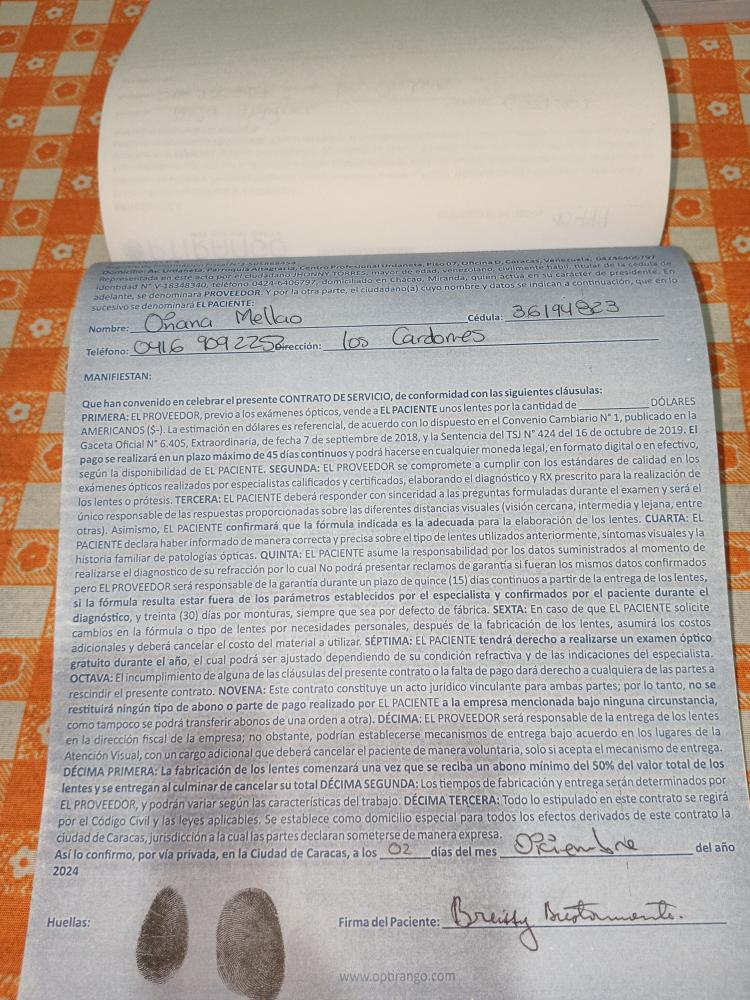 Domicilio: Av. Urdaneta, Parroquia Altagracia, Centro Profesional Urdaneta, Piso 07, Oficina D, Caracas, Venezuela. 04246406797
Representada en este acto por el ciudadano JHONNY TORRES, mayor de edad, venezolano, civilmente hábil, titular de la cédula de
identidad N° V-18348340, teléfono 0424-6406797, domiciliado en Chacao, Miranda, quien actúa en su carácter de presidente. En
adelante, se denominará PROVEEDOR. Y por la otra parte, el ciudadano(a) cuyo nombre y datos se indican a continuación, que en lo
sucesivo se denominará EL PACIENTE:
Nombre: Oriana Mellao Cédula: 36194823
Teléfono: 0416 9092253 Dirección: los Cardones
MANIFIESTAN:
Que han convenido en celebrar el presente CONTRATO DE SERVICIO, de conformidad con las siguientes cláusulas:
PRIMERA: EL PROVEEDOR, previo a los exámenes ópticos, vende a EL PACIENTE unos lentes por la cantidad de __________ DÓLARES
AMERICANOS ($-). La estimación en dólares es referencial, de acuerdo con lo dispuesto en el Convenio Cambiario N° 1, publicado en la
Gaceta Oficial N° 6.405, Extraordinaria, de fecha 7 de septiembre de 2018, y la Sentencia del TSJ N° 424 del 16 de octubre de 2019. El
pago se realizará en un plazo máximo de 45 días continuos y podrá hacerse en cualquier moneda legal, en formato digital o en efectivo,
según la disponibilidad de EL PACIENTE. SEGUNDA: EL PROVEEDOR se compromete a cumplir con los estándares de calidad en los
exámenes ópticos realizados por especialistas calificados y certificados, elaborando el diagnóstico y RX prescrito para la realización de
los lentes o prótesis. TERCERA: EL PACIENTE deberá responder con sinceridad a las preguntas formuladas durante el examen y será el
único responsable de las respuestas proporcionadas sobre las diferentes distancias visuales (visión cercana, intermedia y lejana, entre
otras). Asimismo, EL PACIENTE confirmará que la fórmula indicada es la adecuada para la elaboración de los lentes. CUARTA: EL
PACIENTE declara haber informado de manera correcta y precisa sobre el tipo de lentes utilizados anteriormente, síntomas visuales y la
historia familiar de patologías ópticas. QUINTA: EL PACIENTE asume la responsabilidad por los datos suministrados al momento de
realizarse el diagnostico de su refracción por lo cual No podrá presentar reclamos de garantía si fueran los mismos datos confirmados
pero EL PROVEEDOR será responsable de la garantía durante un plazo de quince (15) días continuos a partir de la entrega de los lentes,
si la fórmula resulta estar fuera de los parámetros establecidos por el especialista y confirmados por el paciente durante el
diagnóstico, y treinta (30) días por monturas, siempre que sea por defecto de fábrica. SEXTA: En caso de que EL PACIENTE solicite
cambios en la fórmula o tipo de lentes por necesidades personales, después de la fabricación de los lentes, asumirá los costos
adicionales y deberá cancelar el costo del material a utilizar. SÉPTIMA: EL PACIENTE tendrá derecho a realizarse un examen óptico
gratuito durante el año, el cual podrá ser ajustado dependiendo de su condición refractiva y de las indicaciones del especialista.
OCTAVA: El incumplimiento de alguna de las cláusulas del presente contrato o la falta de pago dará derecho a cualquiera de las partes a
rescindir el presente contrato. NOVENA: Este contrato constituye un acto jurídico vinculante para ambas partes; por lo tanto, no se
restituirá ningún tipo de abono o parte de pago realizado por EL PACIENTE a la empresa mencionada bajo ninguna circunstancia,
como tampoco se podrá transferir abonos de una orden a otra). DÉCIMA: EL PROVEEDOR será responsable de la entrega de los lentes
en la dirección fiscal de la empresa; no obstante, podrían establecerse mecanismos de entrega bajo acuerdo en los lugares de la
Atención Visual, con un cargo adicional que deberá cancelar el paciente de manera voluntaria, solo si acepta el mecanismo de entrega.
DÉCIMA PRIMERA: La fabricación de los lentes comenzará una vez que se reciba un abono mínimo del 50% del valor total de los
lentes y se entregan al culminar de cancelar su total DÉCIMA SEGUNDA: Los tiempos de fabricación y entrega serán determinados por
EL PROVEEDOR, y podrán variar según las características del trabajo. DÉCIMA TERCERA: Todo lo estipulado en este contrato se regirá
por el Código Civil y las leyes aplicables. Se establece como domicilio especial para todos los efectos derivados de este contrato la
ciudad de Caracas, jurisdicción a la cual las partes declaran someterse de manera expresa.
Así lo confirmo, por vía privada, en la Ciudad de Caracas, a los 02 días del mes Diciembre del año
2024
Huellas:
Firma del Paciente: Breissy Bustamante.
www.optirango.com